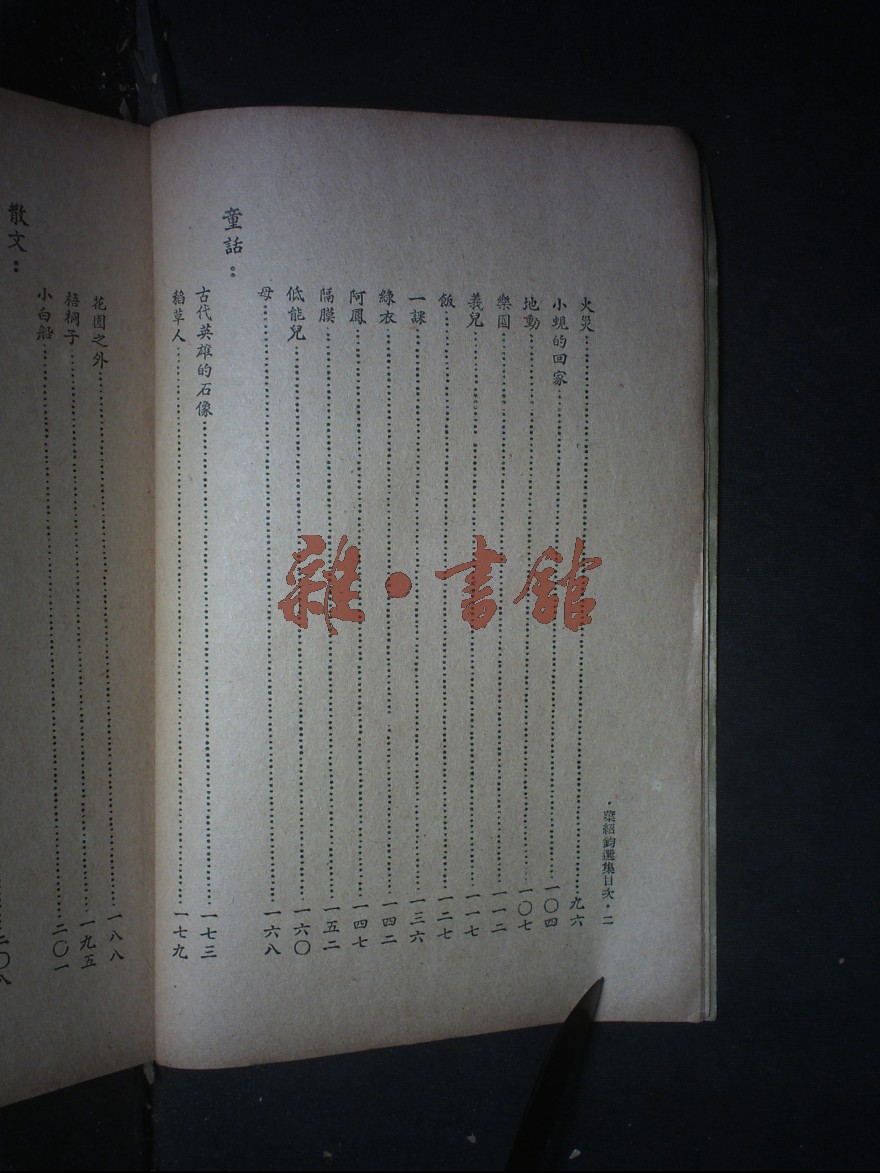 ·葉紹鈞選集目次·二
火災……九六
小蜆的回家……一〇四
地動……一〇七
樂園……一一二
義兒……一一七
飯……一二七
一課……一三六
綠衣……一四二
阿鳳……一四七
隔膜……一五二
低能兒……一六〇
母……一六八
童話：
古代英雄的石像……一七三
稻草人……一七九
花園之外……一八八
梧桐子……一九五
小白船……二〇一
散文：
二〇八
雜·書館